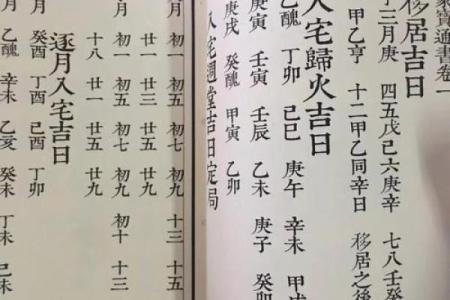 寶通書卷一
移居吉日
三月庚 四五戊己六庚辛 七八壬癸
甲乙亨 十二甲乙同辛日 移居之後
入宅歸火吉日
乙醜 丁卯 己巳 庚午 辛未 甲戌
庚寅 壬寅 壬辰 乙未 庚子 癸卯
庚戌 癸醜 甲寅 乙卯
入宅週堂吉日定局
月 初一 初五 初七 初十 十三 十五
廿一 廿三 廿五 廿九
月 初一 初五 初七 初十 十三
十八 廿一 廿五 廿九
逐月入宅吉日
月 癸酉 己酉 丁卯
月 乙醜 辛未 乙亥 癸未 丁未 己未